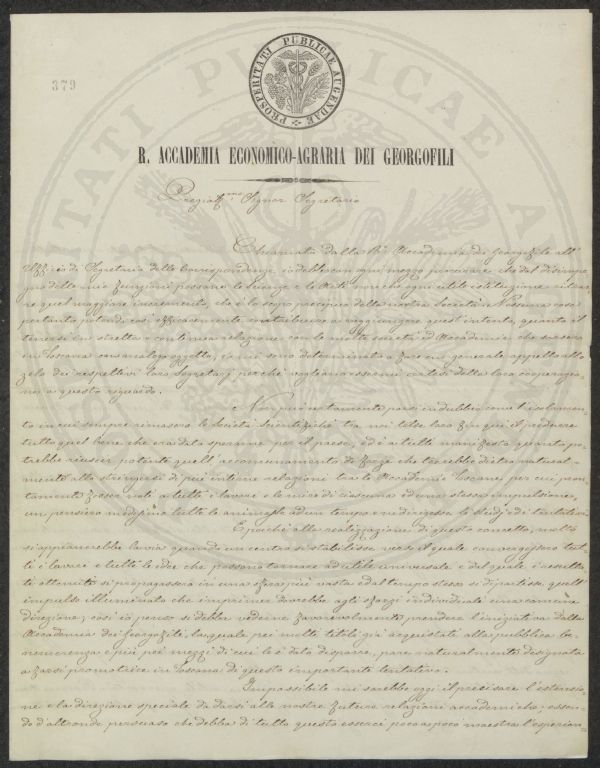 379
PROSPERITATI PUBLICAE AUGENDAE
R. ACCADEMIA ECONOMICO-AGRARIA DEI GEORGOFILI
Signor Segretario
Chiamato dalla Rle Accademia dei Georgofili all'
Uffizio di Segretario delle Corrispondenze io debbo con ogni mezzo procurare che dal disimpe
gno delle mie funzioni possano le Scienze e le Arti non che ogni utile istituzione ritrar
re quel maggiore incremento, che è lo scopo precipuo della nostra Società. Nessuna cosa
pertanto potendo così efficacemente contribuire a raggiungere quest'intento, quanto il
tenersi in stretta e continua relazione con le molte società ed Accademie che sono
in Toscana con analogo oggetto, io mi sono determinato a fare un generale appello allo
zelo dei respettivi loro Segretarj perchè vogliano essermi cortesi della loro cooperazio-
ne a questo riguardo.
Non può certamente porsi in dubbio come l'isolamen-
to in cui sempre rimasero le Società Scientifiche tra noi tolse loro fin qui il produrre
tutto quel bene che era dato sperarne per il paese, ed è a tutti manifesto quanto po-
trebbe riuscir potente quell'accomunamento di forze che terrebbe dietro natural-
mente allo stringersi di più intime relazioni tra le Accademie Toscane, per cui pron-
tamente fosser noti a tutte i lavori e le mire di ciascuna ed una stessa impulsione,
un pensiero medesimo tutte le animasse ad un tempo e ne dirigesse li studj ed i tentativi.
E poichè alla realizzazione di questo concetto, molto
si appianerebbe la via quando un centro si stabilisse verso il quale convergessero tut-
ti i lavori e tutte le idee che possono tornare ad utile universale e dal quale i resulta-
ti ottenuti si propagassero in una sfera più vasta e dal tempo stesso si dipartisse quell'
impulso illuminato che imprimer dovrebbe agli sforzi individuali una comune
direzione; così io penso si debba vedere favorevolmente prendere l'iniziativa dalla
Accademia dei Georgofili, la quale pei molti titoli già acquistati alla pubblica be-
nemerenza e più pei mezzi di cui le è dato disporre, pare naturalmente designata
a farsi promotrice in Toscana di questo importante tentativo.
Impossibile mi sarebbe oggi il precisare l'estensio-
ne e la direzione speciale da darsi alle nostre future relazioni accademiche; essen-
do d'altronde persuaso che debba di tutto questo esserci poco a poco maestra l'esperien=